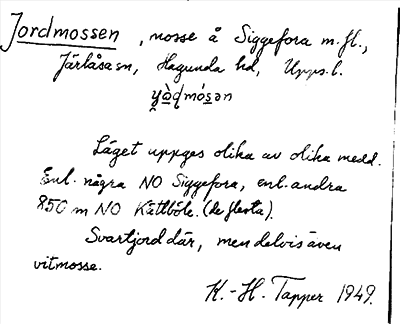 Jordmossen, mosse å Siggefora m.fl.,
Järlåsa sn, Hagunda hd, Upps. l.
Läget uppges olika av olika medd.
Enl. några NO Siggefora, enl. andra
850 m NO Kättböle. (de flesta).
Svartjord där, men delvis även
vitmosse.
K.-H. Tapper 1949.